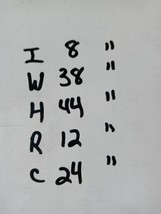 I 8 "
W 38 "
H 44 "
R 12 "
C 24 "